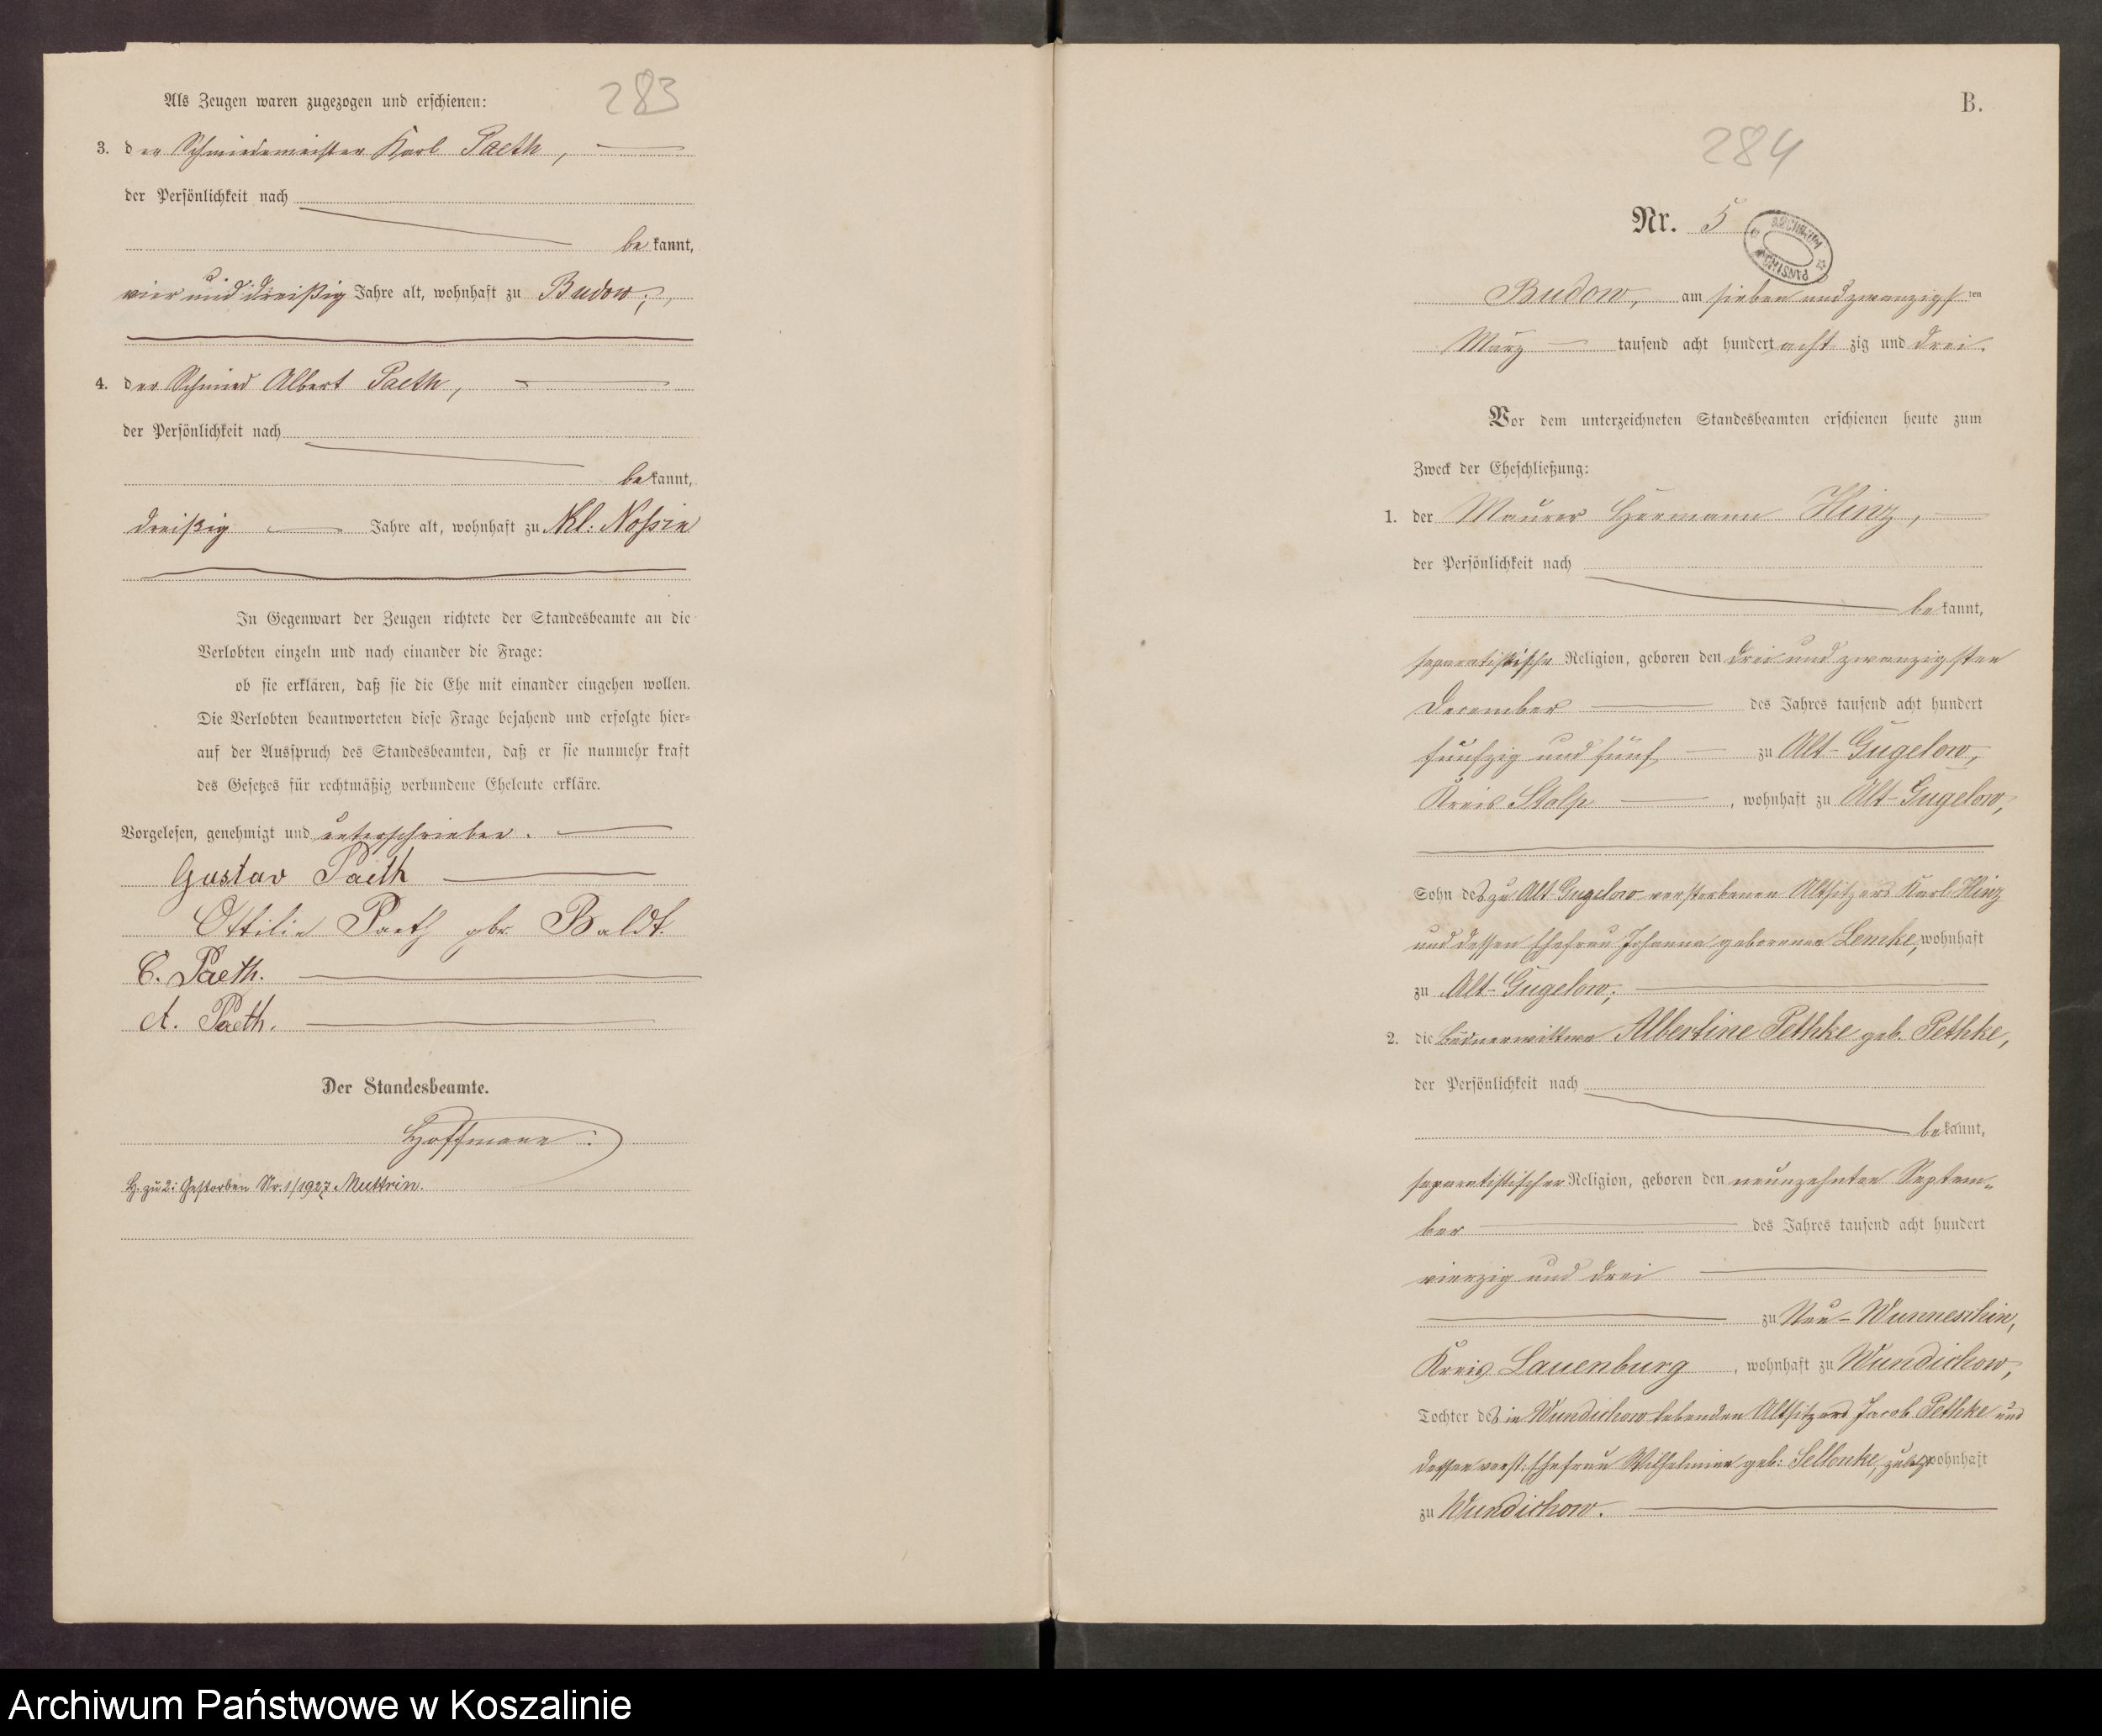 283
Als Zeugen waren zugezogen und erschienen:
3. der Schmiedemeister Karl Paeth,
der Persönlichkeit nach
bekannt,
vier und dreißig Jahre alt, wohnhaft zu Budow;
4. der Schmied Albert Paeth,
der Persönlichkeit nach
bekannt,
dreißig Jahre alt, wohnhaft zu Kl: Nossin
In Gegenwart der Zeugen richtete der Standesbeamte an die
Verlobten einzeln und nach einander die Frage:
ob sie erklären, daß sie die Ehe mit einander eingehen wollen.
Die Verlobten beantworteten diese Frage bejahend und erfolgte hier-
auf der Ausspruch des Standesbeamten, daß er sie nunmehr kraft
des Gesetzes für rechtmäßig verbundene Eheleute erkläre.
Vorgelesen, genehmigt und unterschrieben.
Gustav Paeth
Ottilie Paeth gbr. Baldt.
C. Paeth.
A. Paeth.
Der Standesbeamte.
Hoffmann.
H. zu 2: Gestorben Nr. 1/1927 Muttrin.
B.
284
Nr. 5
ARCHIWUM PAŃSTWOWE
Budow, am sieben und zwanzigsten
März tausend acht hundert acht zig und drei.
Vor dem unterzeichneten Standesbeamten erschienen heute zum
Zweck der Eheschließung:
1. der Maurer Hermann Hinz,
der Persönlichkeit nach
bekannt,
separatistische Religion, geboren den drei und zwanzigsten
December des Jahres tausend acht hundert
fünfzig und fünf zu Alt-Gugelow,
Kreis Stolp, wohnhaft zu Alt-Gugelow,
Sohn des zu Alt Gugelow verstorbenen Altsitzers Karl Hinz
und dessen Ehefrau Johanna geborenen Lemke, wohnhaft
zu Alt-Gugelow;
2. die Büdnerwittwe Albertine Pethke geb. Pethke,
der Persönlichkeit nach
bekannt,
separatistischer Religion, geboren den neunzehnten Septem-
ber des Jahres tausend acht hundert
vierzig und drei
zu Neu-Wunneschin,
Kreis Lauenburg, wohnhaft zu Wundichow,
Tochter des in Wundichow lebenden Altsitzers Jacob Pethke und
dessen verst: Ehefrau Wilhelmine geb: Sellonke, wohnhaft
zu Wundichow.
Archiwum Państwowe w Koszalinie